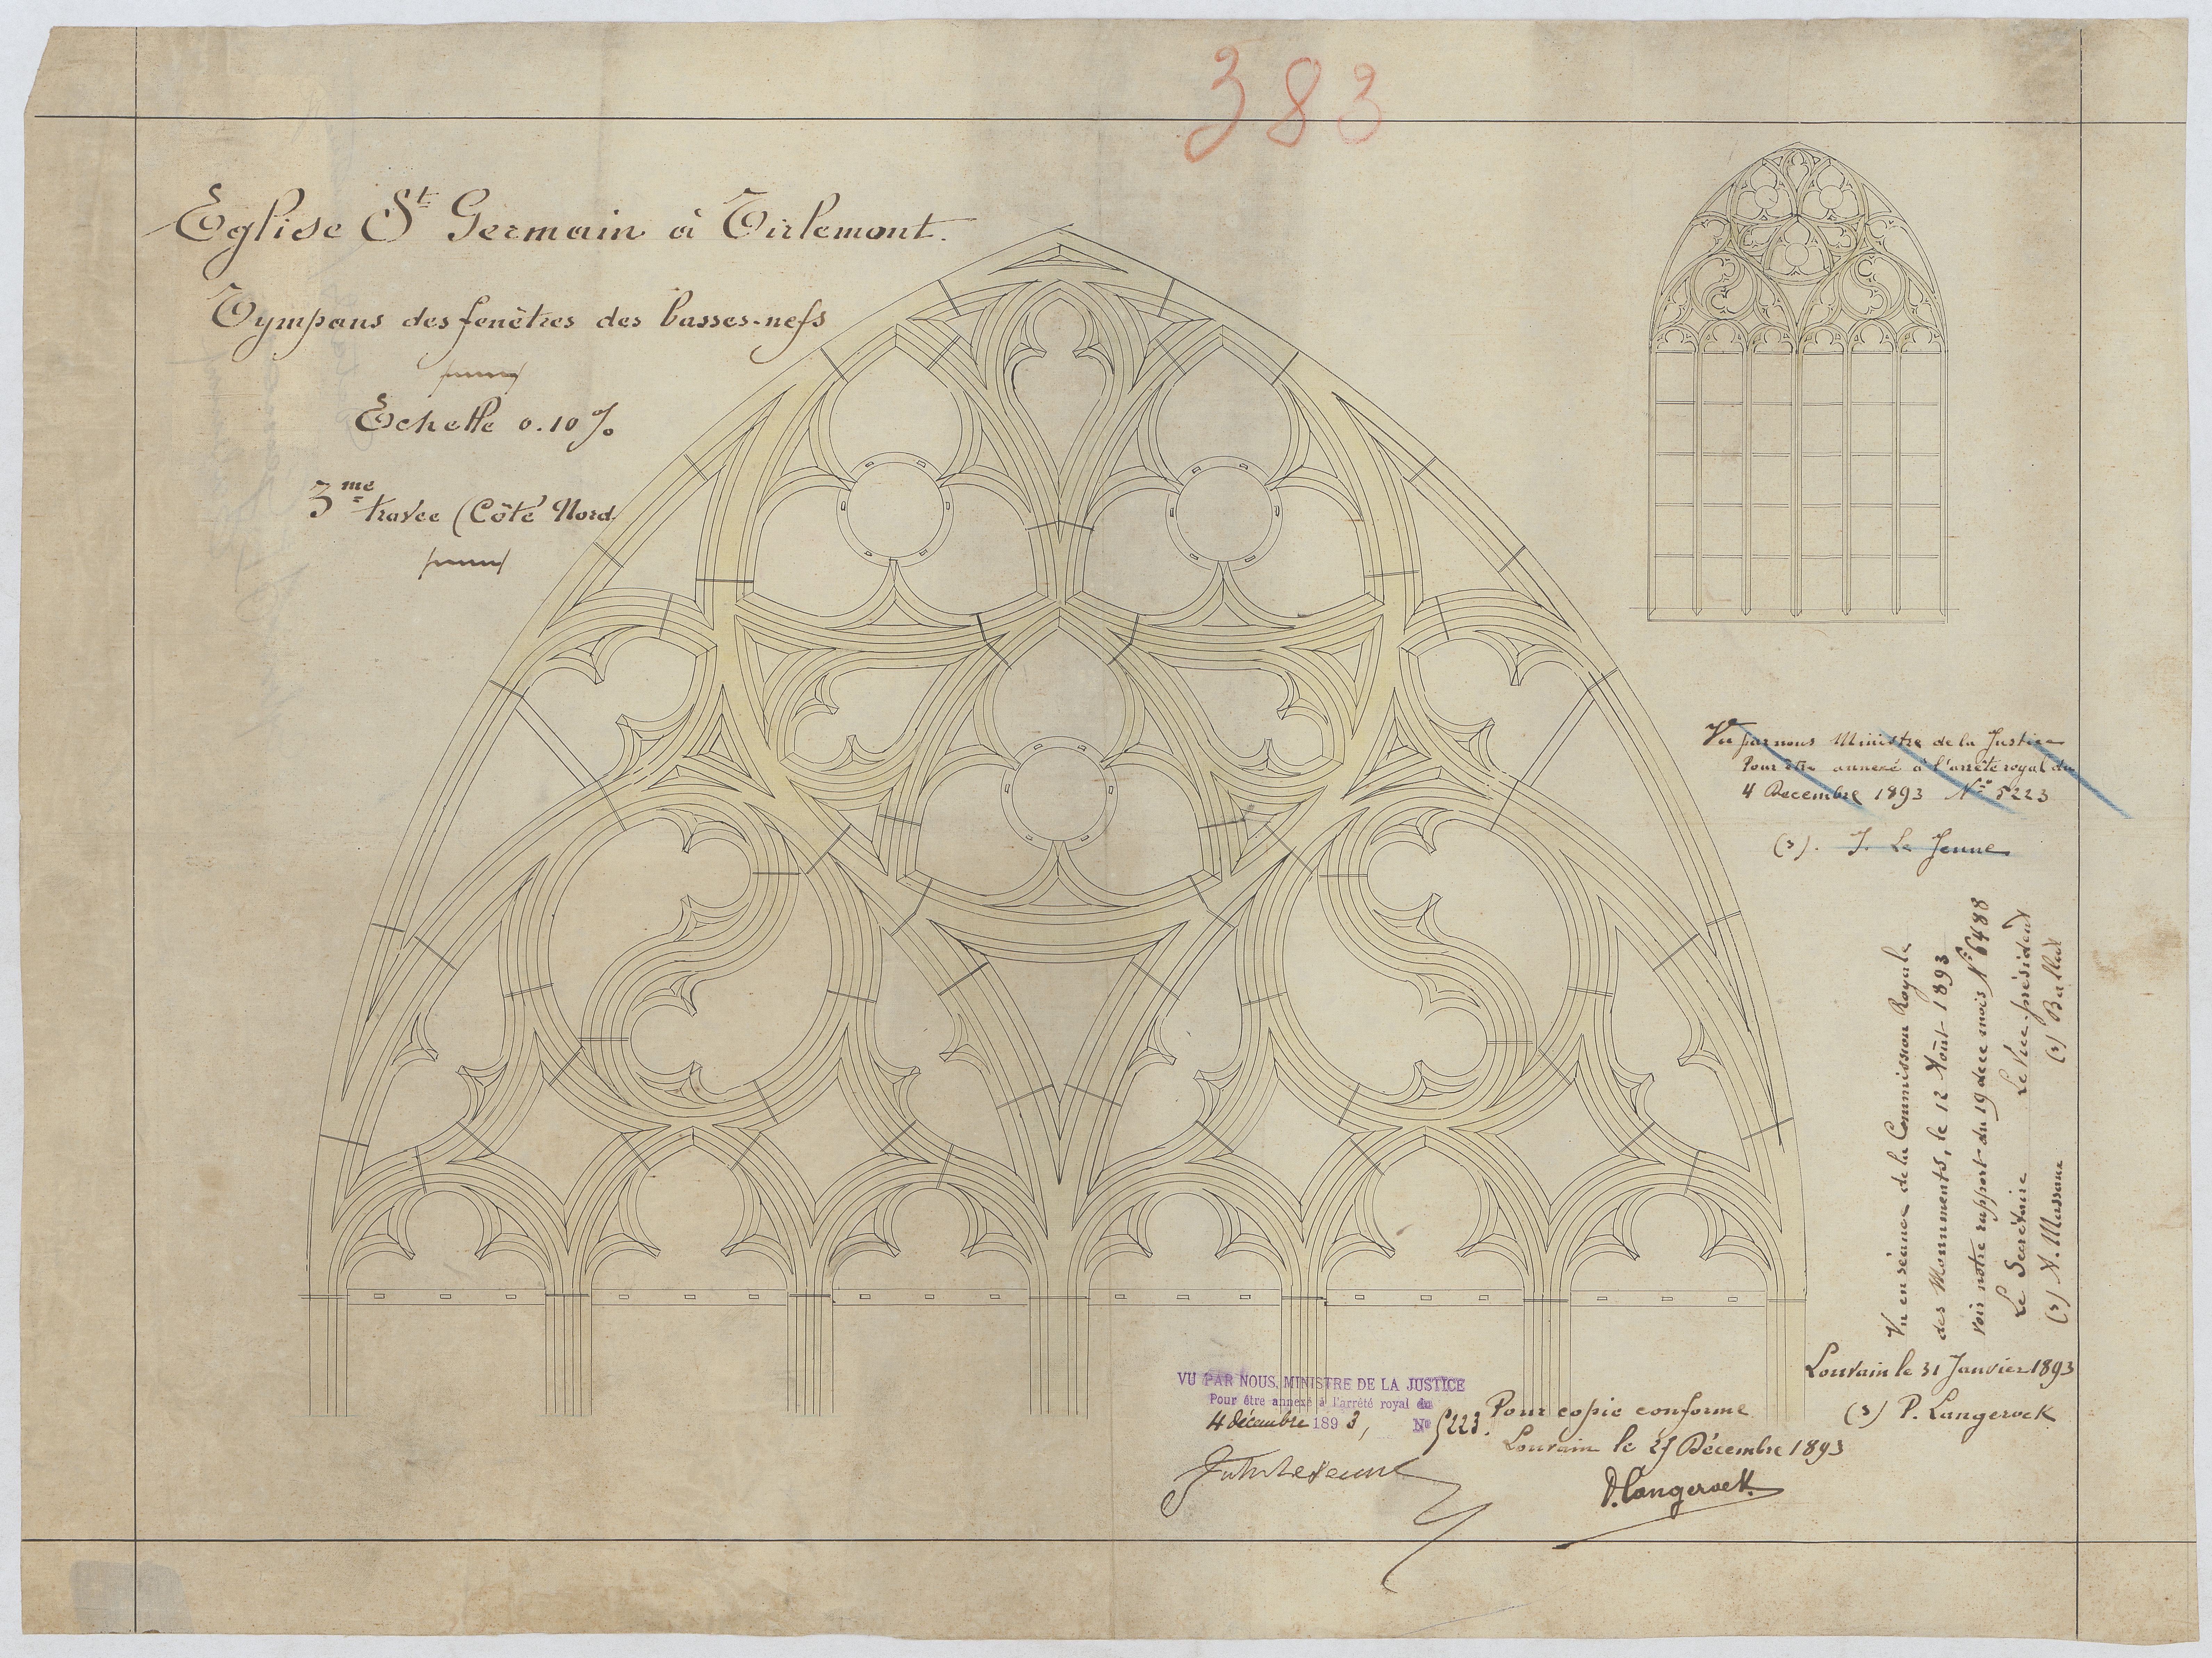 383
Eglise St Germain à Tirlemont.
Tympans des fenêtres des basses-nefs
Echelle 0.10 %
3me travée (Côté Nord
Vu par nous Ministre de la Justice
Pour être annexé à l'arrêté royal du
4 Decembre 1893 No 5223
(s). J. Le Jeune
Vu en séance de la Commission Royale
des Monuments, le 12 Août 1893
voir notre rapport du 19 de ce mois No 6488
Le Secrétaire Le Vice-président
(s) A. Massaux (s)
Louvain le 31 Janvier 1893
(s) P. Langerock
VU PAR NOUS, MINISTRE DE LA JUSTICE
Pour être annexé à l'arrêté royal du
4 décembre 1893, No 5223.
Jules Lejeune
Pour copie conforme
Louvain le 27 Décembre 1893
P. Langerock.